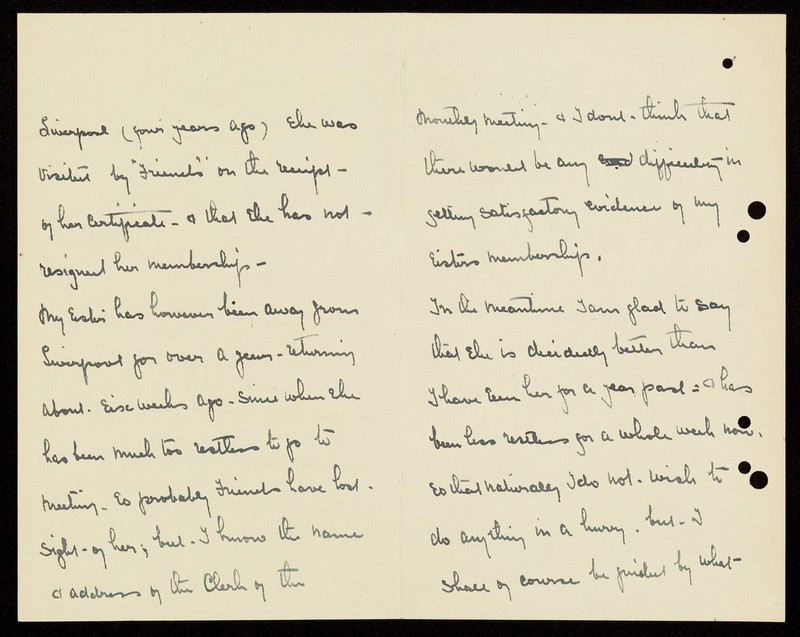 Liverpool (four years ago) she was
visited by "Friends" on the receipt -
of her certificate - & that she has not -
resigned her membership -
My sister has however been away from
Liverpool for over a year - returning
about six weeks ago - since when she
has been much too restless to go to
meeting - so probably Friends have lost
sight - of her; but - I know the name
& address of the Clerk of the
Monthly Meeting - & I don't think that
there would be any difficulty in
getting satisfactory evidence of my
sisters membership.
In the meantime I am glad to say
that she is decidedly better than
I have seen her for a year past = & has
been less restless for a whole week now.
so that naturally I do not wish to
do anything in a hurry. but - I
shall of course be guided by what -